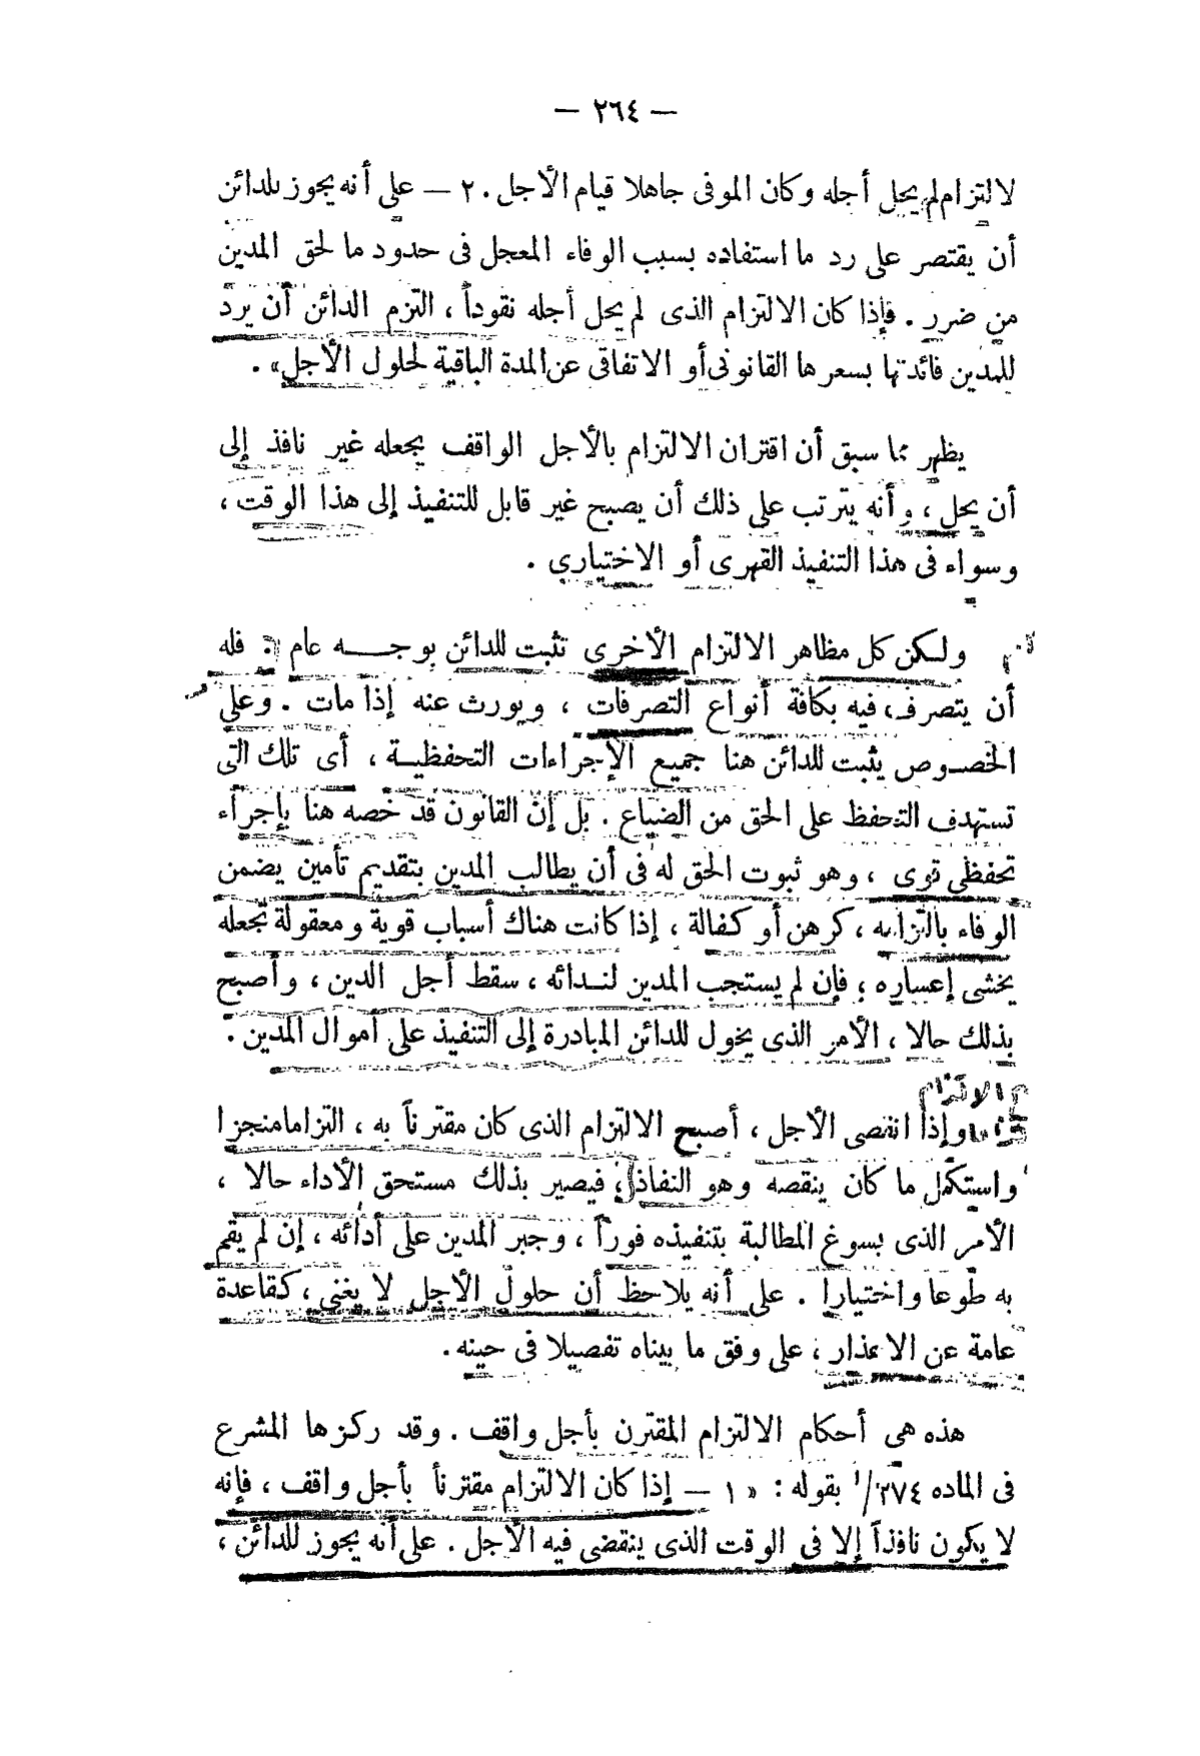 — ٢٦٤ —
لالتزام لم يحل أجله وكان الموفى جاهلا قيام الأجل . ٢ — على أنه يجوز للدائن
أن يقتصر على رد ما استفاده بسبب الوفاء المعجل فى حدود ما لحق المدين
من ضرر . فإذا كان الالتزام الذى لم يحل أجله نقوداً ، التزم الدائن أن يرد
للمدين فائدتها بسعرها القانونى أو الاتفاقى عن المدة الباقية لحلول الأجل» .
يظهر مما سبق أن اقتران الالتزام بالأجل الواقف يجعله غير نافذ إلى
أن يحل ، وأنه يترتب على ذلك أن يصبح غير قابل للتنفيذ إلى هذا الوقت ،
وسواء فى هذا التنفيذ القهرى أو الاختيارى .
ولكن كل مظاهر الالتزام الأخرى تثبت للدائن بوجه عام : فله
أن يتصرف فيه بكافة أنواع التصرفات ، ويورث عنه إذا مات . وعلى
الخصوص يثبت للدائن هنا جميع الإجراءات التحفظية ، أى تلك التى
تستهدف التحفظ على الحق من الضياع . بل إن القانون قد خصه هنا بإجراء
تحفظى قوى ، وهو ثبوت الحق له فى أن يطالب المدين بتقديم تأمين يضمن
الوفاء بالتزامه ، كرهن أو كفالة ، إذا كانت هناك أسباب قوية ومعقولة تجعله
يخشى إعساره ؛ فإن لم يستجب المدين لندائه ، سقط أجل الدين ، وأصبح
بذلك حالا ، الأمر الذى يخول للدائن المبادرة إلى التنفيذ على أموال المدين .
الالتزام
وإذا انقضى الأجل ، أصبح الالتزام الذى كان مقترناً به ، التزاما منجزا
واستكمل ما كان ينقصه وهو النفاذ ؛ فيصير بذلك مستحق الأداء حالا ،
الأمر الذى يسوغ المطالبة بتنفيذه فوراً ، وجبر المدين على أدائه ، إن لم يقم
به طوعا واختيارا . على أنه يلاحظ أن حلول الأجل لا يغنى ، كقاعدة
عامة عن الاعذار ، على وفق ما بيناه تفصيلا فى حينه .
هذه هى أحكام الالتزام المقترن بأجل واقف . وقد ركزها المشرع
فى الماده ٢٧٤/١ بقوله : « ١ — إذا كان الالتزام مقترناً بأجل واقف ، فإنه
لا يكون نافذاً إلا فى الوقت الذى ينقضى فيه الأجل . على أنه يجوز للدائن ،